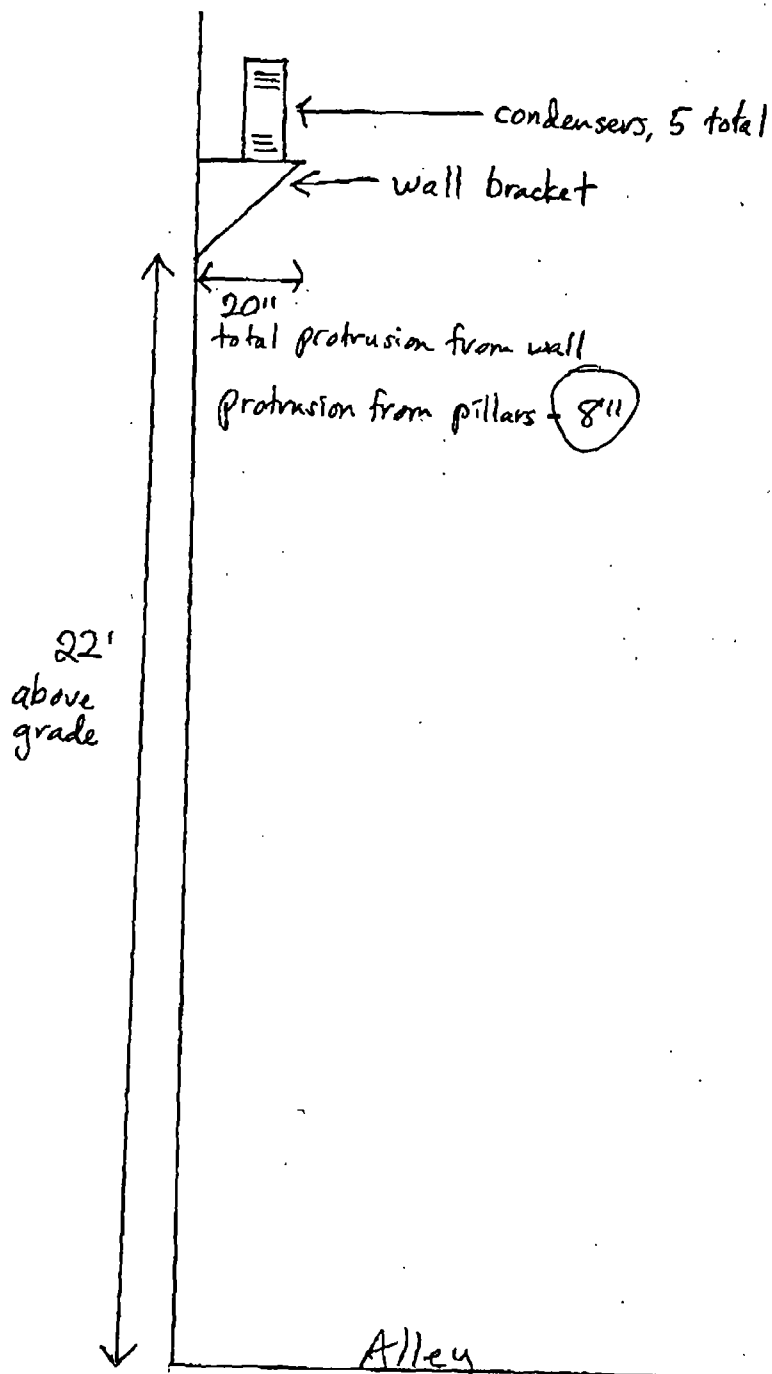 condensers, 5 total
wall bracket
20"
total protrusion from wall
protrusion from pillars - 8"
22'
above
grade
Alley